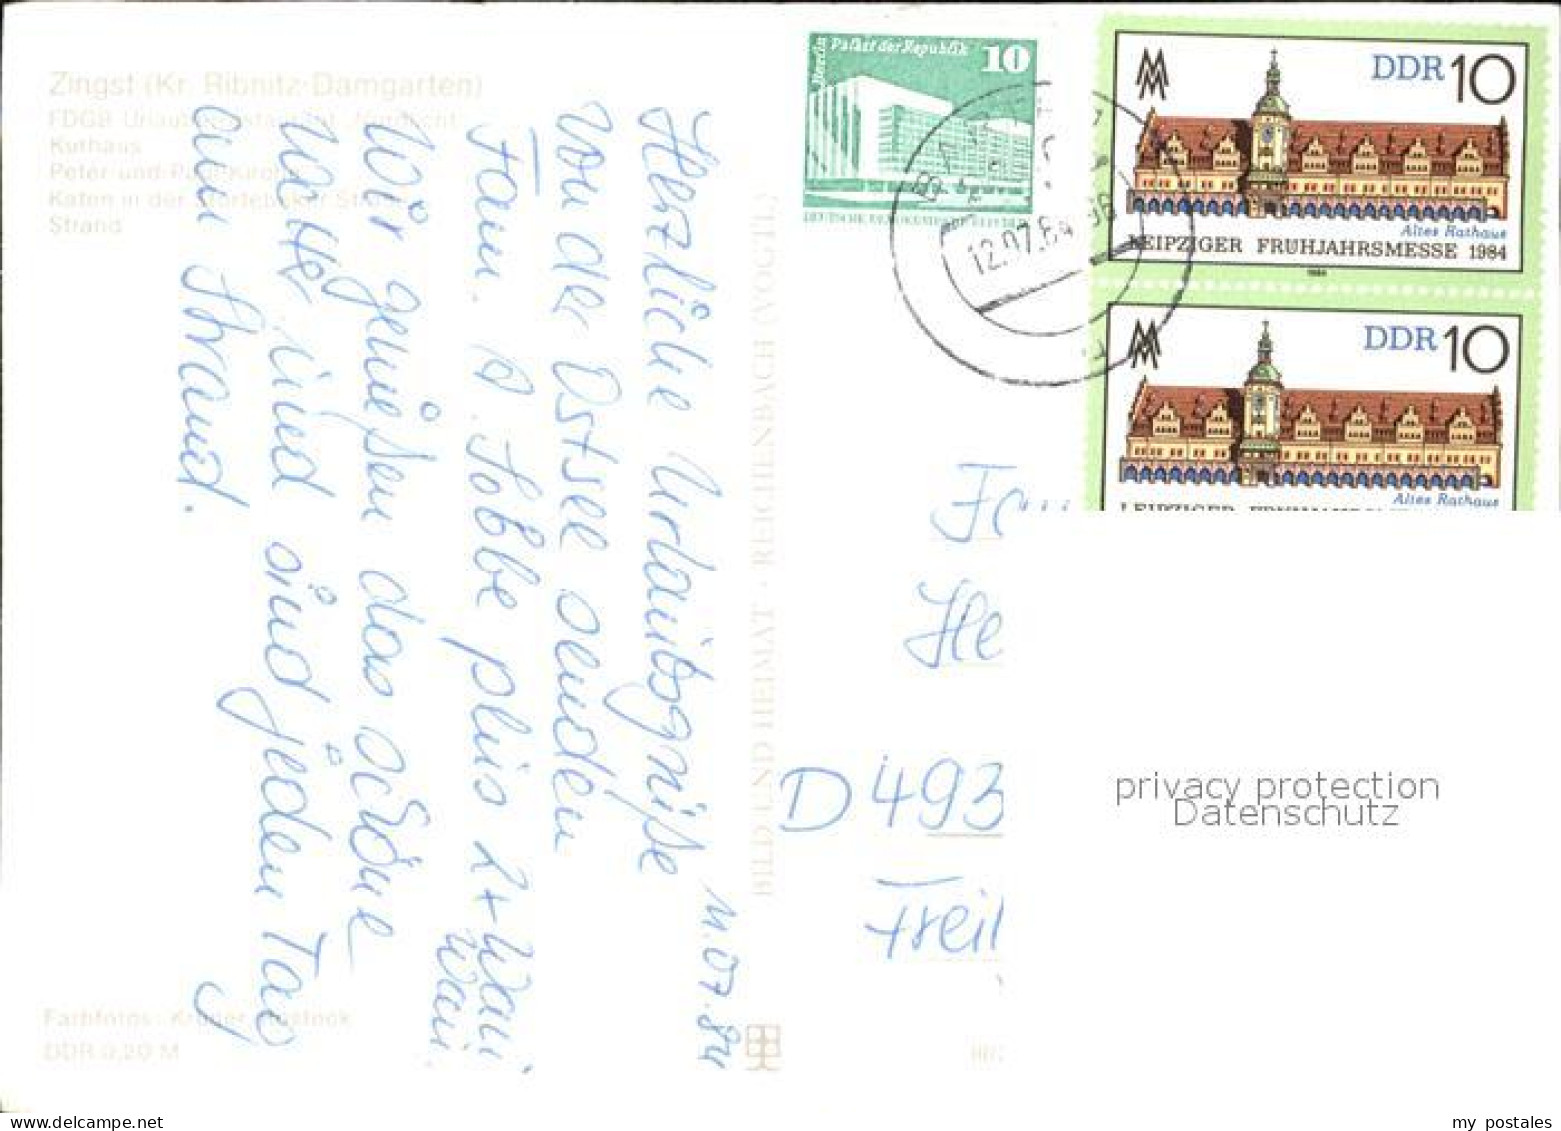 Zingst (Kr. Ribnitz-Damgarten)
Kurhaus
Peter-und Paul-Kirche
Katen in der Störtebeker Straße
Strand
11.07.84
Herzliche Urlaubsgrüße
von der Ostsee senden
Fam. Sobbe plus 2x Wau
Wau.
Wir genießen das schöne
Wetter und sind jeden Tag
am Strand.
Farbfotos: Krüger, Rostock
DDR 0,20 M
BILD UND HEIMAT · REICHENBACH (VOGTL)
Berlin Palast der Republik 10
DEUTSCHE DEMOKRATISCHE REPUBLIK
12.07.84
DDR 10
Altes Rathaus
LEIPZIGER FRÜHJAHRSMESSE 1984
1984
DDR 10
Altes Rathaus
He
D 493
Freil
privacy protection
Datenschutz
my postales